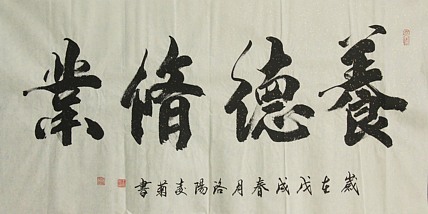 養德脩業
歲在戊戌春月洛陽麦菊書